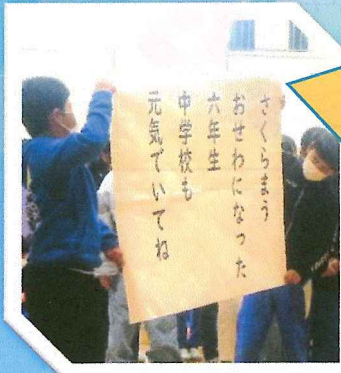 さくらまう
おせわになった
六年生
中学校も
元気でいてね